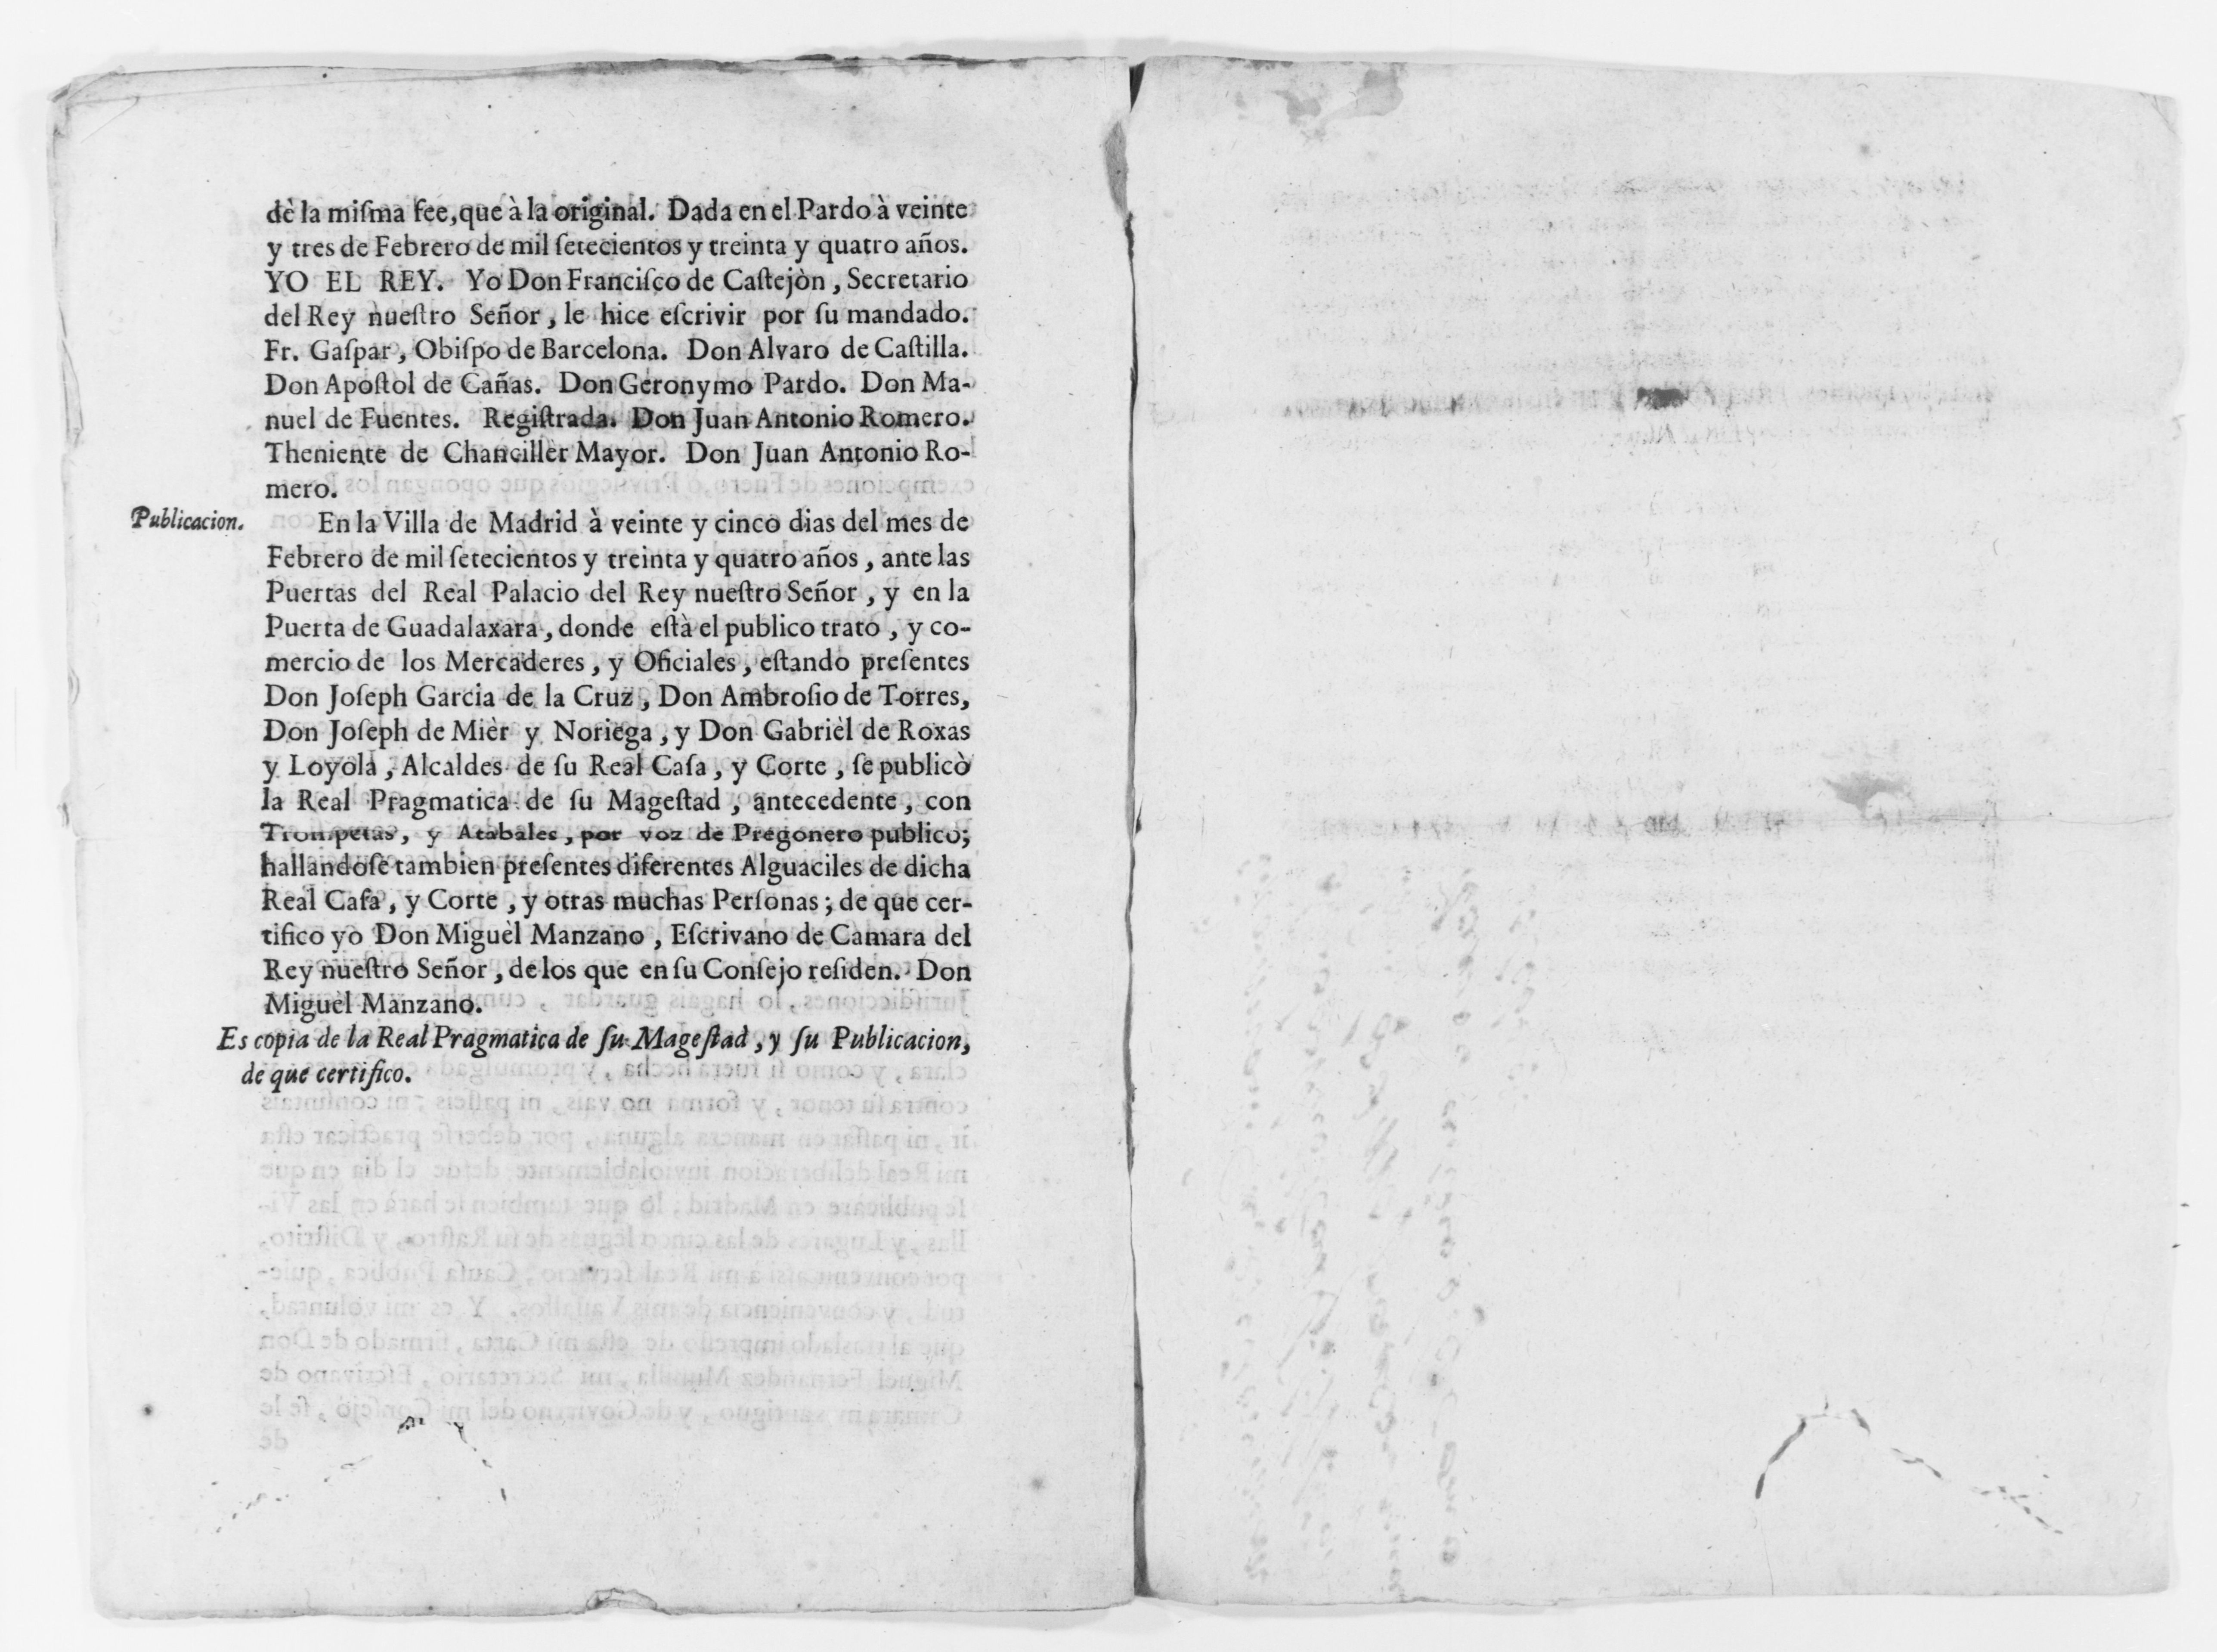 dè la miſma fee, que à la original. Dada en el Pardo à veinte
y tres de Febrero de mil ſetecientos y treinta y quatro años.
YO EL REY. Yo Don Franciſco de Caſtejòn, Secretario
del Rey nueſtro Señor, le hice eſcrivir por ſu mandado.
Fr. Gaſpar, Obiſpo de Barcelona. Don Alvaro de Caſtilla.
Don Apoſtol de Cañas. Don Geronymo Pardo. Don Ma-
nuel de Fuentes. Regiſtrada. Don Juan Antonio Romero.
Theniente de Chancillèr Mayor. Don Juan Antonio Ro-
mero.
Publicacion. En la Villa de Madrid à veinte y cinco dias del mes de
Febrero de mil ſetecientos y treinta y quatro años, ante las
Puertas del Real Palacio del Rey nueſtro Señor, y en la
Puerta de Guadalaxara, donde eſtà el publico trato, y co-
mercio de los Mercaderes, y Oficiales, eſtando preſentes
Don Joſeph Garcia de la Cruz, Don Ambroſio de Torres,
Don Joſeph de Mièr y Noriega, y Don Gabrièl de Roxas
y Loyola, Alcaldes de ſu Real Caſa, y Corte, ſe publicò
la Real Pragmatica de ſu Mageſtad, antecedente, con
Trompetas, y Atabales, por voz de Pregonero publico;
hallandoſe tambien preſentes diferentes Alguaciles de dicha
Real Caſa, y Corte, y otras muchas Perſonas; de que cer-
tifico yo Don Miguèl Manzano, Eſcrivano de Camara del
Rey nueſtro Señor, de los que en ſu Conſejo reſiden. Don
Miguèl Manzano.
Es copia de la Real Pragmatica de ſu Mageſtad, y ſu Publicacion,
de que certifico.